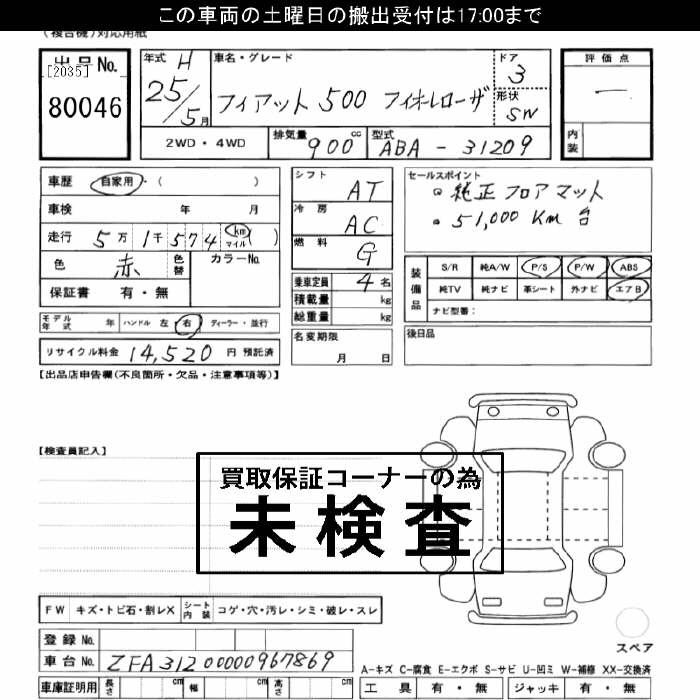 この車両の土曜日の搬出受付は17:00まで
(複合機)対応用紙
出品No.
[2035]
80046
年式 H 25/5月
車名・グレード
フィアット 500 フィオーレローザ
ドア 3
形状 SW
評価点
一
内装
2WD・4WD
排気量 900 cc
型式 ABA-31209
車歴 自家用・( )
車検 年 月
走行 5万1千574 km マイル ( )
色 赤 色替 カラーNo.
保証書 有・無
シフト AT
冷房 AC
燃料 G
乗車定員 4名
積載量 kg
総重量 kg
セールスポイント
純正フロアマット
51,000Km台
装備品 S/R 純A/W P/S P/W ABS
純TV 純ナビ 革シート 外ナビ エアB
ナビ型番:
モデル年式 年 ハンドル 左 右 ディーラー・並行
名変期限 月 日
後日品
リサイクル料金 14,520 円 預託済
【出品店申告欄(不良箇所・欠品・注意事項等)】
【検査員記入】
買取保証コーナーの為
未検査
FW キズ・トビ石・割レX シート内装 コゲ・穴・汚レ・シミ・破レ・スレ
スペア
登録No.
車台No. ZFA31200000967869
A-キズ C-腐食 E-エクボ S-サビ U-凹ミ W-補修 XX-交換済
車庫証明用 長さ cm 幅 cm 高さ cm
工具 有・無 ジャッキ 有・無